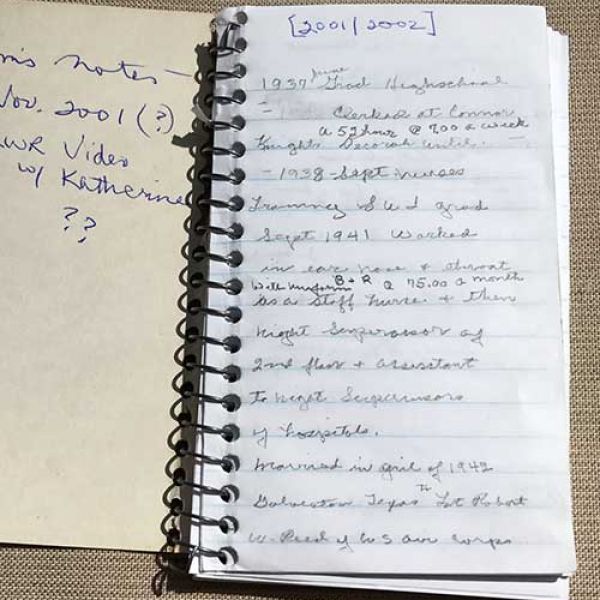 m's notes —
Nov. 2001 (?)
WR Video
w/ Katherine
??
[2001/2002]
June
1937 Grad Highschool
- Clerked at Connor
a 52 hour @ 700 a week
Knights Decorah until.
- 1938 - Sept nurses
Training S U I grad
Sept 1941 Worked
in ear nose + throat
With uniform B + R @ 75.00 a month
as a staff nurse + then
night Supervisor of
2nd floor + assistant
to night Supervisors
of hospitals.
Married in April of 1942
Galveston Texas To Lt Robert
W. Reed of U S air Corps